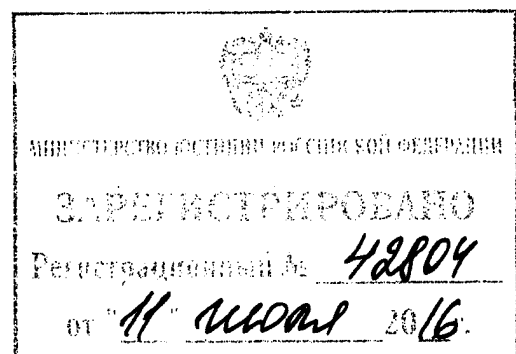 МИНИСТЕРСТВО ЮСТИЦИИ РОССИЙСКОЙ ФЕДЕРАЦИИ
ЗАРЕГИСТРИРОВАНО
Регистрационный № 42804
от "11" июля 2016г.